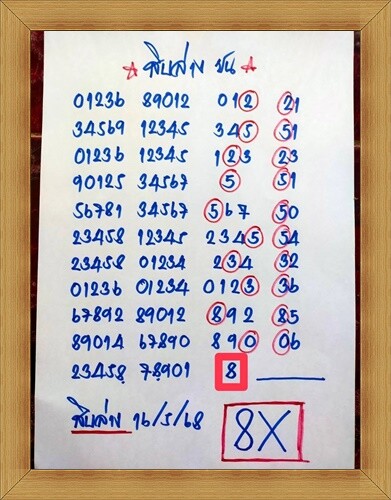 สิบล่าง ชน
01236 89012 012 21
34569 12345 345 51
01236 12345 123 23
90125 34567 5 51
56781 34567 567 50
23458 12345 2345 54
23458 01234 234 32
01236 01234 0123 36
67892 89012 892 85
89014 67890 890 06
23458 78901 8
สิบล่าง 16/5/68 8X